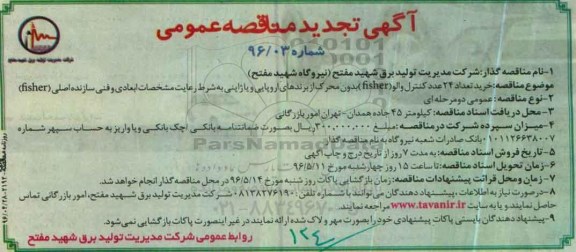 آگهی تجدید مناقصه عمومی
شماره ۹۶/۰۳
شرکت مدیریت تولید برق شهید مفتح
۱-نام مناقصه گذار: شرکت مدیریت تولید برق شهید مفتح (نیروگاه شهید مفتح)
موضوع مناقصه: خرید تعداد ۲۴ عدد کنترل والو (fisher) بدون محرک از برندهای اروپایی و یا ژاپنی به شرط رعایت مشخصات ابعادی و فنی سازنده اصلی (fisher)
۲-نوع مناقصه: عمومی دو مرحله ای
۳-محل دریافت اسناد مناقصه: کیلومتر ۴۵ جاده همدان-تهران امور بازرگانی
۴-میزان سپرده شرکت در مناقصه: مبلغ ۴۰۰,۰۰۰,۰۰۰ ریال بصورت ضمانتنامه بانکی، چک بانکی و یا واریز به حساب سپهر شماره
۰۱۰۱۱۲۶۶۳۸۰۰۷ بانک صادرات شعبه نیروگاه به نام مناقصه گذار.
۵-تاریخ فروش اسناد مناقصه: به مدت ۷ روز از تاریخ درج و چاپ آگهی
۶-زمان تحویل اسناد مناقصه: تا ساعت ۱۵ روز چهارشنبه مورخ ۹۶/۵/۱۱
۷-زمان و محل قرائت پیشنهادات مناقصه: زمان بازگشایی پاکات روز شنبه مورخ ۹۶/۵/۱۴ در محل مناقصه گذار انجام خواهد شد.
۸-در صورت نیاز به اطلاعات، پیشنهاد دهندگان می توانند با شماره تلفن ۰۸۱۳۸۲۷۶۱۹۰ شرکت مدیریت تولید برق شهید مفتح، امور بازرگانی تماس
حاصل نمایند و یا به سایت www.tavanir.ir مراجعه نمایند.
۹-پیشنهاد دهندگان بایستی پاکات پیشنهادی خود را بصورت مهر و لاک شده ارائه نمایند در غیر اینصورت پاکات بازگشایی نمی شود.
روابط عمومی شرکت مدیریت تولید برق شهید مفتح
۱۲۴